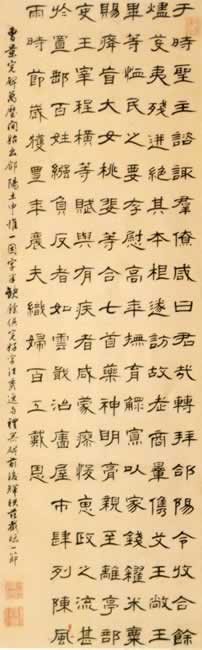 于時聖主諮諏群僚咸曰君哉轉拜郃陽令收合餘
燼芟夷殘迸絕其本根遂訪故老商量儁艾王敞王
畢等恤民之要存慰高年撫育鰥寡以家錢糴米粟
賜癃盲大女桃斐等合七首藥神明膏親至離亭部
吏王宰程橫等賦與有疾者咸蒙瘳悛惠政之流甚
於置郵百姓繈負反者如雲戢治廬屋市肆列陳風
雨時節歲獲豐年農夫織婦百工戴恩
曹景完碑萬曆間始出郃陽土中惟一因字半缺餘俱完好字法遒逸與禮器碑前後輝映臨一節